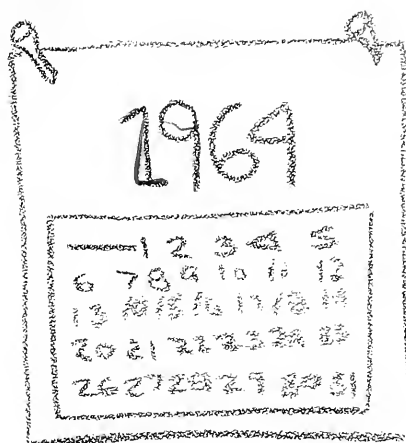 1964
1 2 3 4 5
6 7 8 9 10 11 12
13 14 15 16 17 18 19
20 21 22 23 24 25
26 27 28 29 30 31